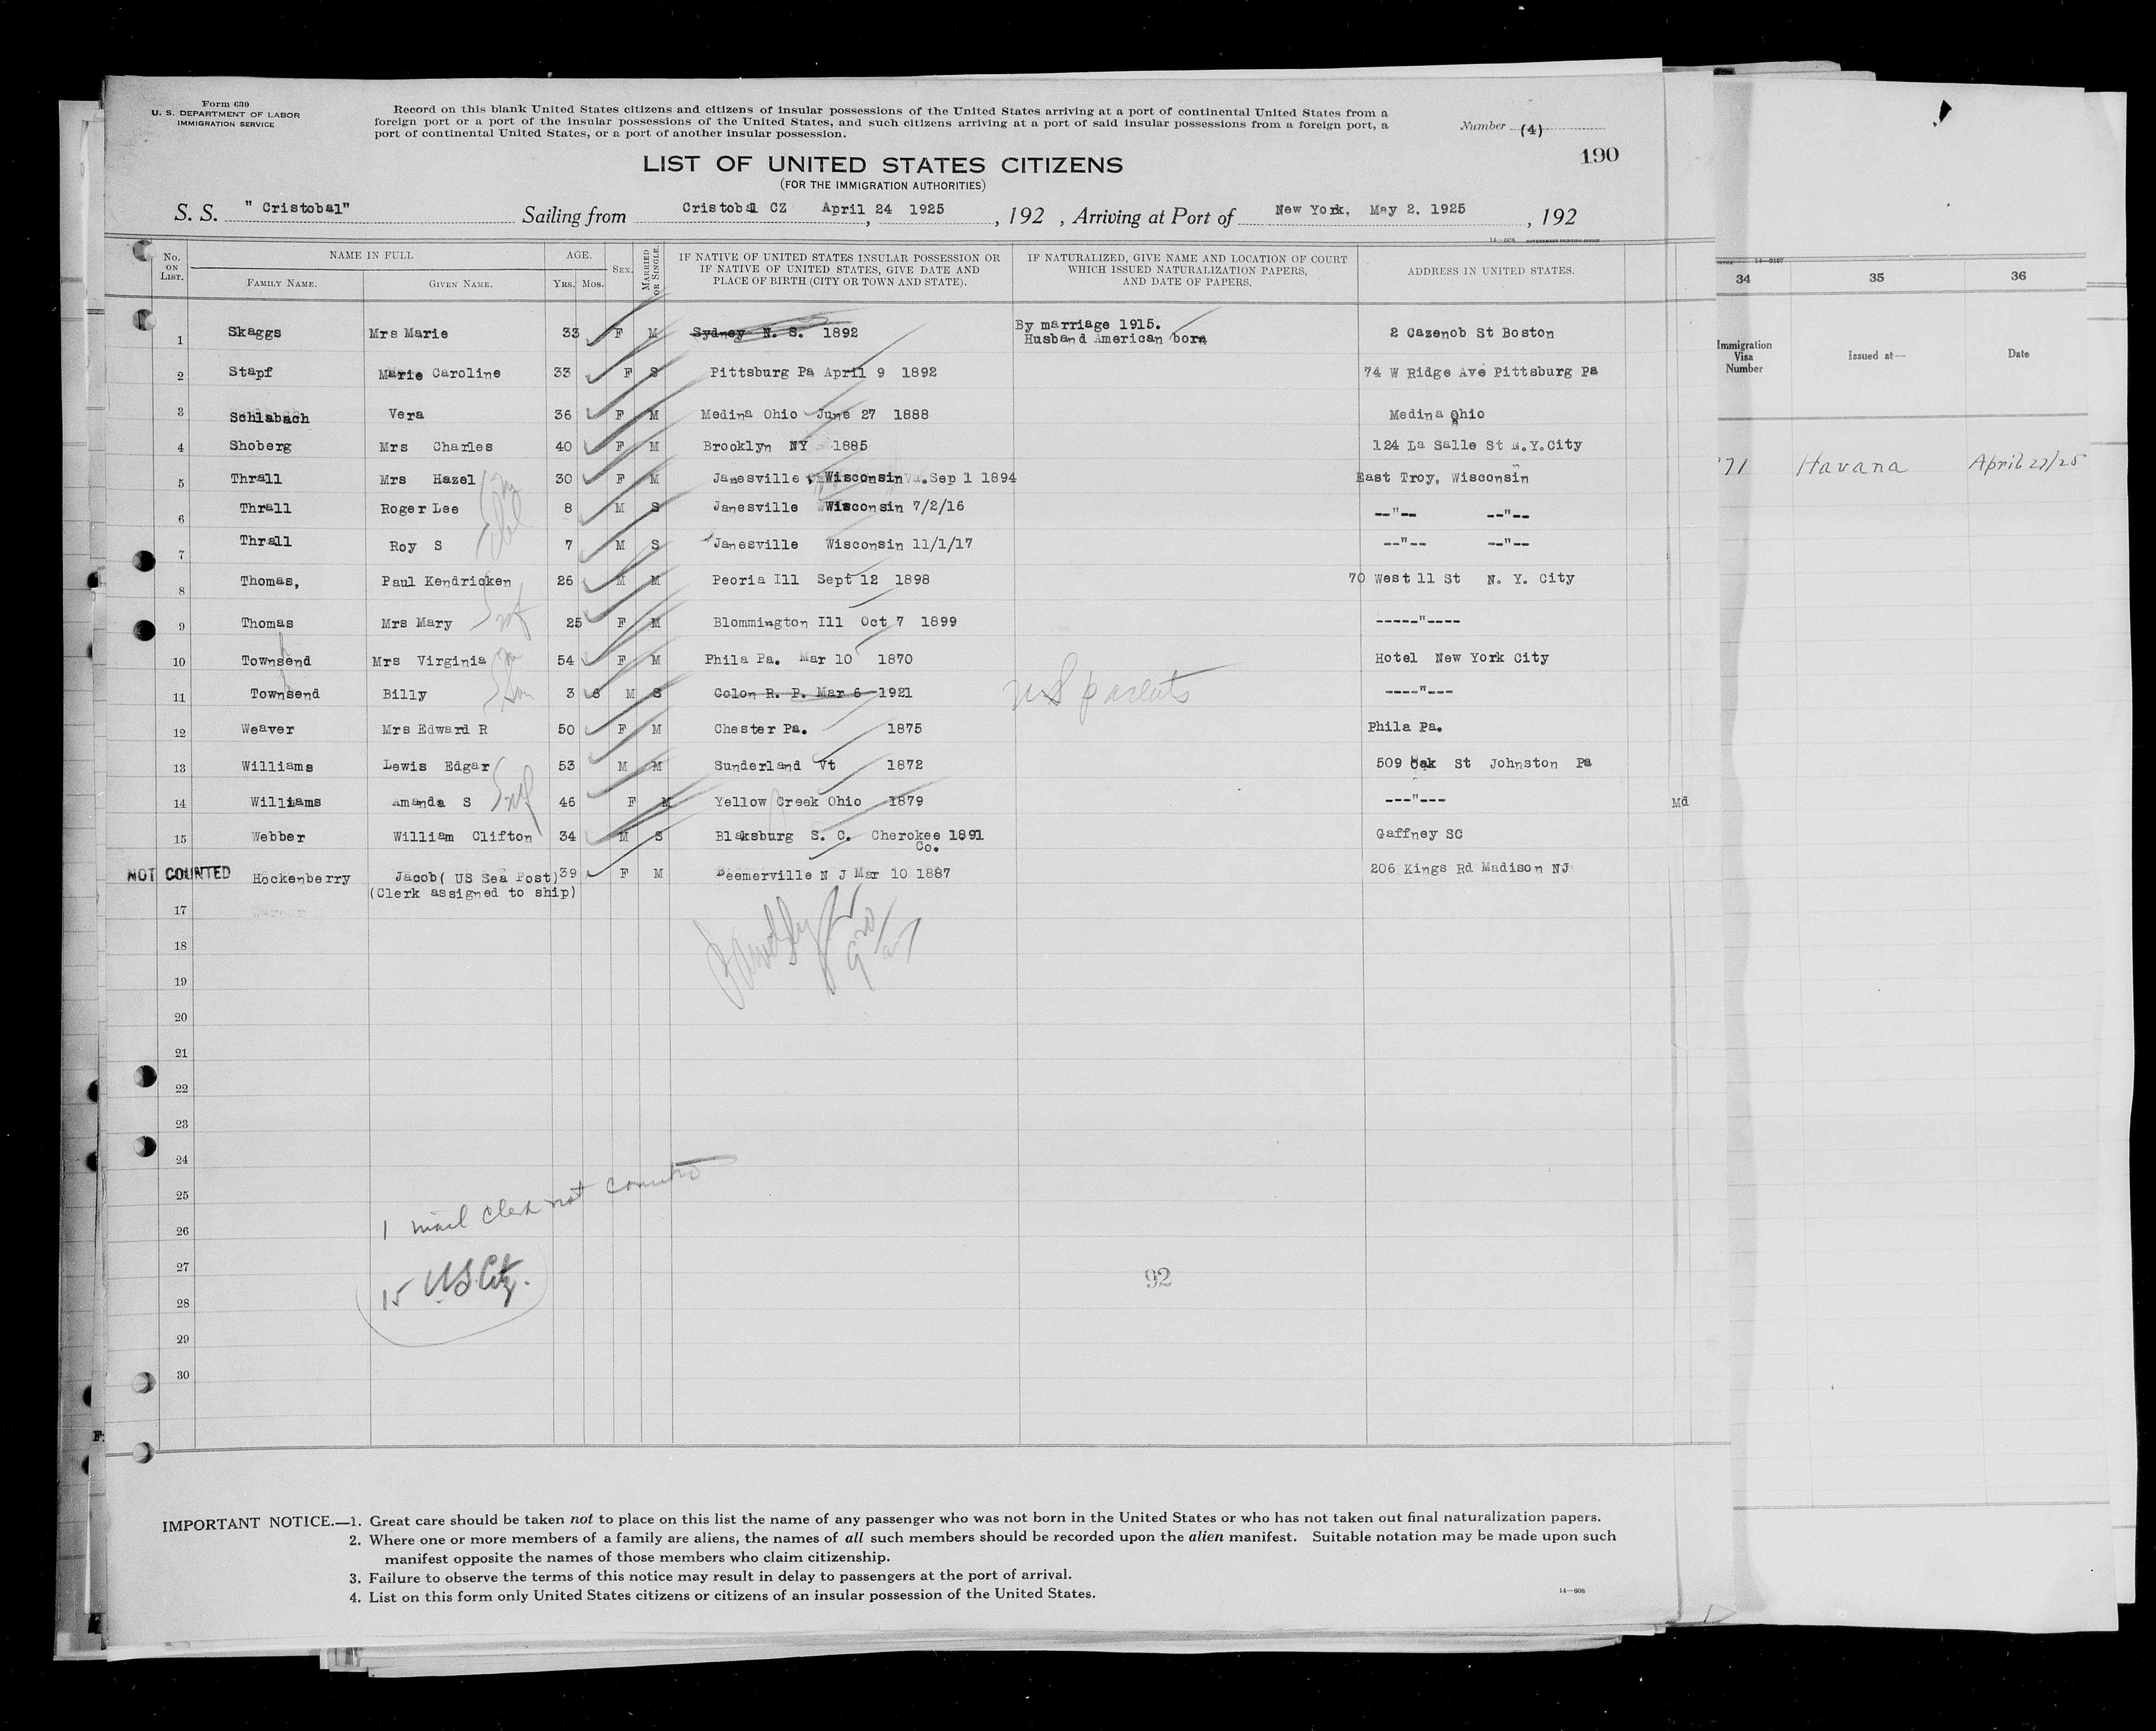 Form 630
U. S. DEPARTMENT OF LABOR
IMMIGRATION SERVICE
Record on this blank United States citizens and citizens of insular possessions of the United States arriving at a port of continental United States from a
foreign port or a port of the insular possessions of the United States, and such citizens arriving at a port of said insular possessions from a foreign port, a
port of continental United States, or a port of another insular possession.
Number (4)
190
LIST OF UNITED STATES CITIZENS
(FOR THE IMMIGRATION AUTHORITIES)
S. S. " Cristobal" Sailing from Cristobal CZ April 24 1925, 192 , Arriving at Port of New York, May 2, 1925, 192
14—608 GOVERNMENT PRINTING OFFICE
No. ON LIST. NAME IN FULL FAMILY NAME. GIVEN NAME. AGE. YRS. MOS. SEX. MARRIED OR SINGLE. IF NATIVE OF UNITED STATES INSULAR POSSESSION OR IF NATIVE OF UNITED STATES, GIVE DATE AND PLACE OF BIRTH (CITY OR TOWN AND STATE). IF NATURALIZED, GIVE NAME AND LOCATION OF COURT WHICH ISSUED NATURALIZATION PAPERS, AND DATE OF PAPERS. ADDRESS IN UNITED STATES.
1 Skaggs Mrs Marie 33 F M Sydney N. S. 1892 By marriage 1915. Husband American born 2 Cazenob St Boston
2 Stapf Marie Caroline 33 F S Pittsburg Pa April 9 1892 74 W Ridge Ave Pittsburg Pa
3 Schlabach Vera 36 F M Medina Ohio June 27 1888 Medina Ohio
4 Shoberg Mrs Charles 40 F M Brooklyn NY 1885 124 La Salle St N.Y.City
5 Thrall Mrs Hazel 30 F M Janesville Wisconsin .Sep 1 1894 East Troy, Wisconsin
6 Thrall Roger Lee 8 M S Janesville Wisconsin 7/2/16 --"-- --"--
7 Thrall Roy S 7 M S Janesville Wisconsin 11/1/17 --"-- --"--
8 Thomas, Paul Kendricken 26 M M Peoria Ill Sept 12 1898 70 West 11 St N. Y. City
9 Thomas Mrs Mary 25 F M Blommington Ill Oct 7 1899 -----"----
10 Townsend Mrs Virginia 54 F M Phila Pa. Mar 10 1870 Hotel New York City
11 Townsend Billy 3 6 M S Colon R. P. Mar 6 1921 US parents ----"---
12 Weaver Mrs Edward R 50 F M Chester Pa. 1875 Phila Pa.
13 Williams Lewis Edgar 53 M M Sunderland Vt 1872 509 Oak St Johnston Pa
14 Williams Amanda S 46 F M Yellow Creek Ohio 1879 ---"---
15 Webber William Clifton 34 M S Blaksburg S. C. Cherokee 1891 Co. Gaffney SC
NOT COUNTED Hockenberry Jacob( US Sea Post) 39 F M Beemerville N J Mar 10 1887 206 Kings Rd Madison NJ
(Clerk assigned to ship)
17
18
19
20
21
22
23
24
25
26
27
28
29
30
1 mail clerk not counted
15 US Citz.
92
IMPORTANT NOTICE.—1. Great care should be taken not to place on this list the name of any passenger who was not born in the United States or who has not taken out final naturalization papers.
2. Where one or more members of a family are aliens, the names of all such members should be recorded upon the alien manifest. Suitable notation may be made upon such
manifest opposite the names of those members who claim citizenship.
3. Failure to observe the terms of this notice may result in delay to passengers at the port of arrival.
4. List on this form only United States citizens or citizens of an insular possession of the United States.
14—608
Md
34 35 36
Immigration Visa Number Issued at— Date
Havana